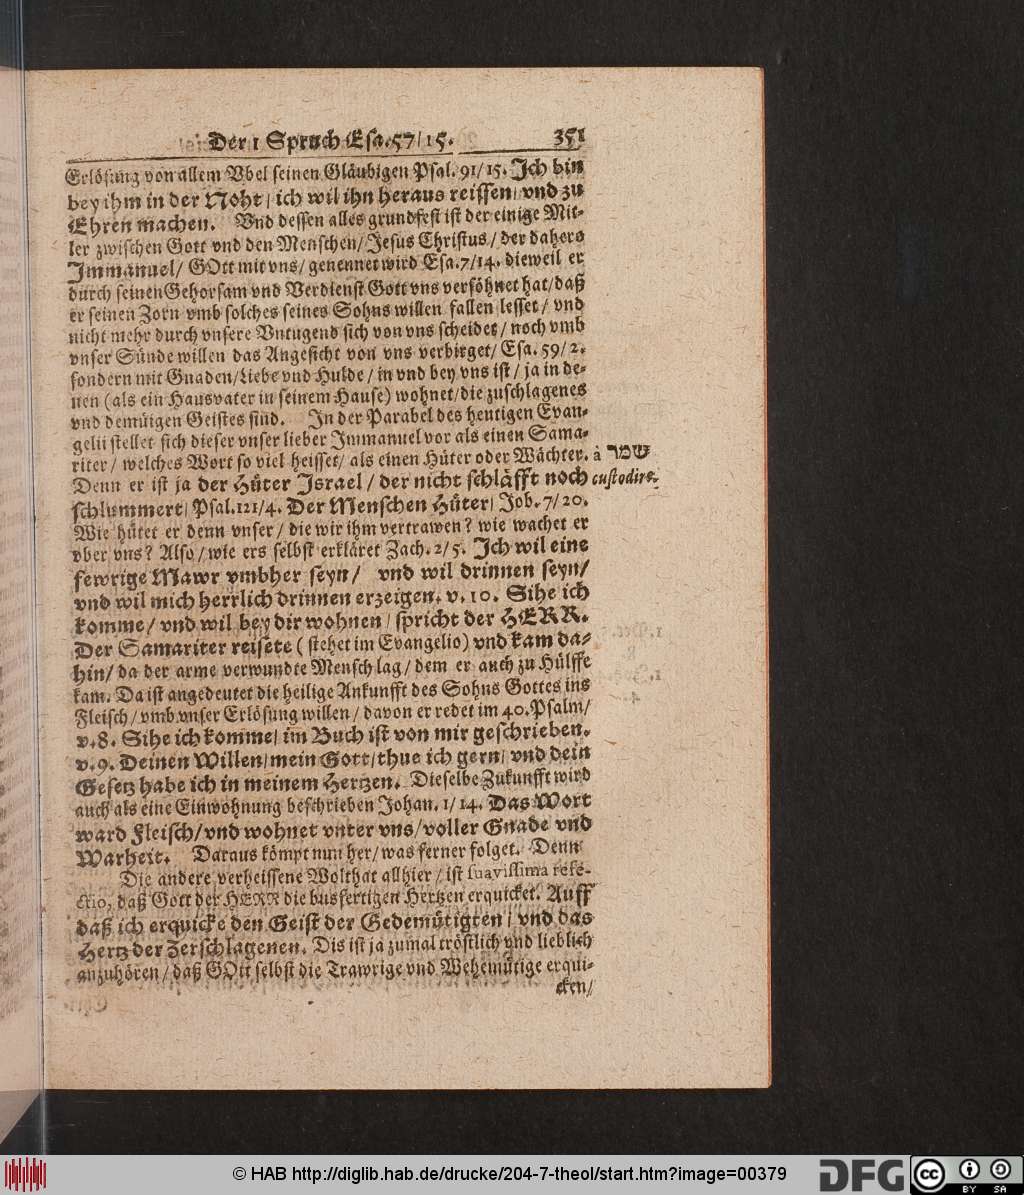 Der 1 Spruch Esa. 57/15. 351
Erlösung von allem Vbel seinen Gläubigen Psal. 91/15. Ich bin
bey ihm in der Noht/ ich wil ihn heraus reissen/ vnd zu
Ehren machen. Vnd dessen alles grundfest ist der einige Mit-
ler zwischen Gott vnd den Menschen/ Jesus Christus/ der dahero
Immanuel/ GOtt mit vns/ genennet wird Esa. 7/14. dieweil er
durch seinen Gehorsam vnd Verdienst Gott vns versöhnet hat/ daß
er seinen Zorn vmb solches seines Sohns willen fallen lesset/ vnd
nicht mehr durch vnsere Vntugend sich von vns scheidet/ noch vmb
vnser Sünde willen das Angesicht von vns verbirget/ Esa. 59/2.
sondern mit Gnaden/ Liebe vnd Hulde/ in vnd bey vns ist/ ja in de-
nen (als ein Hausvater in seinem Hause) wohnet/ die zuschlagenes
vnd demütigen Geistes sind. In der Parabel des heutigen Evan-
gelii stellet sich dieser vnser lieber Immanuel vor als einen Sama-
riter/ welches Wort so viel heisset/ als einen Hüter oder Wächter. à שמר
Denn er ist ja der Hüter Israel/ der nicht schläfft noch custodire.
schlummert/ Psal. 121/4. Der Menschen Hüter/ Job. 7/20.
Wie hütet er denn vnser/ die wir ihm vertrawen? wie wachet er
vber vns? Also/ wie ers selbst erkläret Zach. 2/5. Ich wil eine
fewrige Mawr vmbher seyn/ vnd wil drinnen seyn/
vnd wil mich herrlich drinnen erzeigen. v. 10. Sihe ich
komme/ vnd wil bey dir wohnen/ spricht der HERR.
Der Samariter reisete (stehet im Evangelio) vnd kam da-
hin/ da der arme verwundte Mensch lag/ dem er auch zu Hülffe
kam. Da ist angedeutet die heilige Ankunfft des Sohns Gottes ins
Fleisch/ vmb vnser Erlösung willen/ davon er redet im 40. Psalm/
v. 8. Sihe ich komme/ im Buch ist von mir geschrieben.
v. 9. Deinen Willen/ mein Gott/ thue ich gern/ vnd dein
Gesetz habe ich in meinem Hertzen. Dieselbe Zukunfft wird
auch als eine Einwohnung beschrieben Johan. 1/14. Das Wort
ward Fleisch/ vnd wohnet vnter vns/ voller Gnade vnd
Warheit. Daraus kömpt nun her/ was ferner folget. Denn
Die andere verheissene Wolthat allhier/ ist suavissima refe-
ctio, daß Gott der HERR die busfertigen Hertzen erquicket. Auff
daß ich erquicke den Geist der Gedemütigten/ vnd das
Hertz der Zerschlagenen. Dis ist ja zumal tröstlich vnd lieblich
anzuhören/ daß GOtt selbst die Trawrige vnd Wehemütige erqui-
cken/
© HAB http://diglib.hab.de/drucke/204-7-theol/start.htm?image=00379 DFG cc BY SA